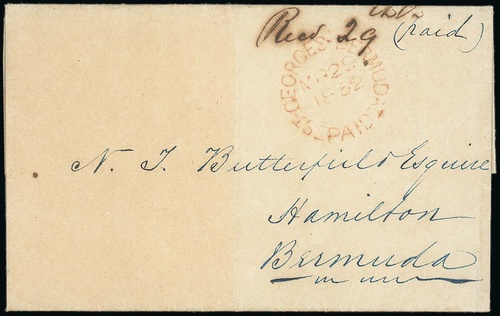 Recd 29 (Paid)
ST. GEORGES BERMUDA
MR 29
1862
PAID
N. T. Butterfield Esquire
Hamilton
Bermuda